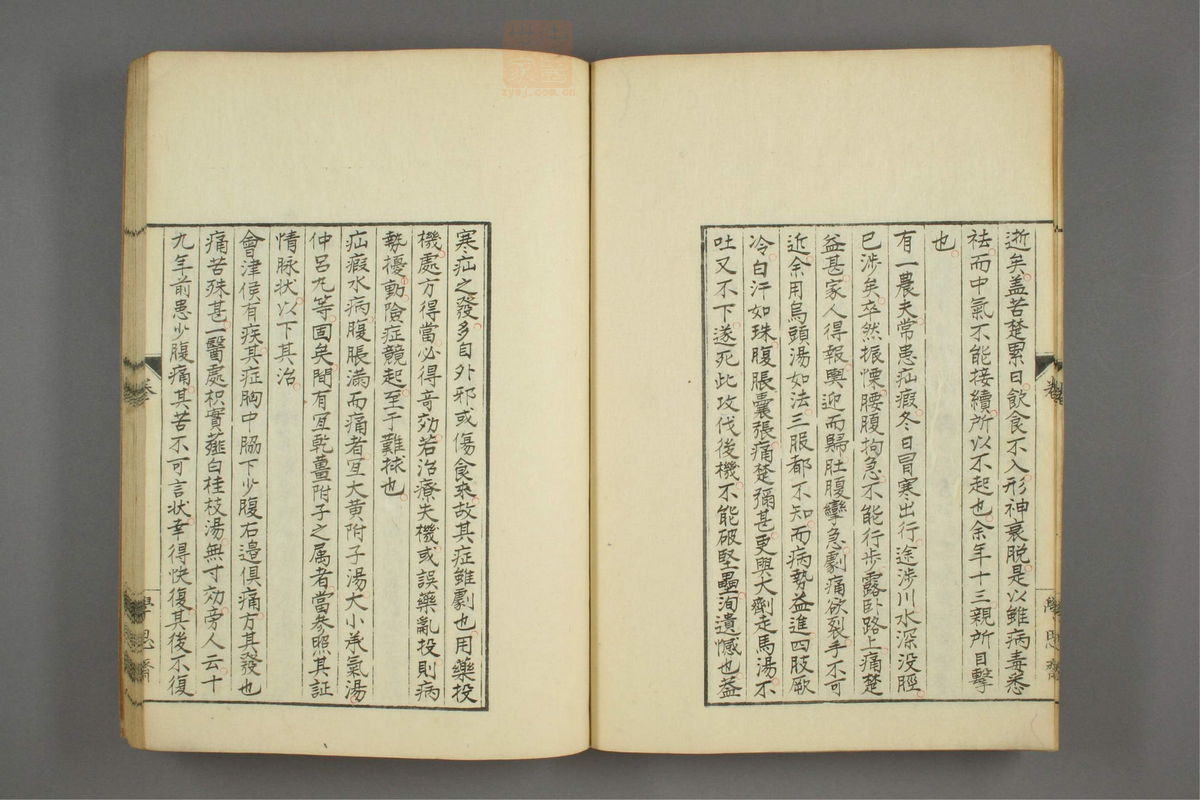 逝矣盖苦楚累日飲食不入形神衰脱是以雖病毒悉
祛而中氣不能接續所以不起也余年十三親所目擊
也
有一農夫常患疝瘕冬日冒寒出行途涉川水深没脛
已涉矣卒然振慄腰腹拘急不能行步露卧路上痛楚
益甚家人得報輿迎而歸肚腹攣急劇痛欲裂手不可
近余用烏頭湯如法三服都不知而病勢益進四肢厥
冷白汗如珠腹脹囊張痛楚彌甚更與大劑走馬湯不
吐又不下遂死此攻伐後機不能破堅壘洵遺憾也益
寒疝之發多自外邪或傷食來故其症雖劇也用藥投
機處方得當必得竒効若治療失機或誤藥亂投則病
勢擾動險症競起至于難捄也
疝瘕水病腹脹満而痛者宜大黄附子湯大小承氣湯
仲呂丸等固矣間有宜乾薑附子之属者當参照其証
情脉状以下其治
會津侯有疾其症胸中脇下少腹右邉俱痛方其發也
痛苦殊甚一醫處枳實薤白桂枝湯無寸効旁人云十
九年前患少腹痛其苦不可言状幸得快復其後不復
卷
學思齋
學思齋
zysj.com.cn